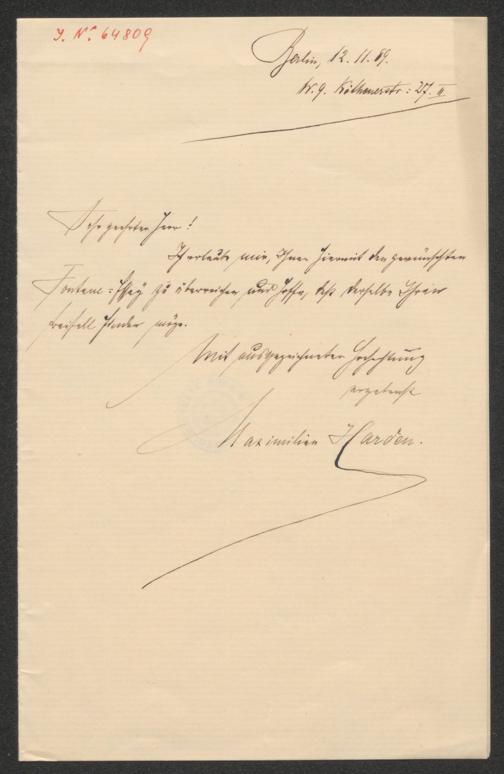 J. Nr. 64809
Berlin, 12. 11. 89.
W. 9. Köthenerstr: 27. II.
Sehr geehrter Herr!
Ich erlaube mir, Ihnen hiermit den gewünschten
Fontane-Essay zu überreichen und hoffe, daß derselbe Ihren
Beifall finden möge.
Mit ausgezeichneter Hochachtung
ergebenst
Maximilian Harden.